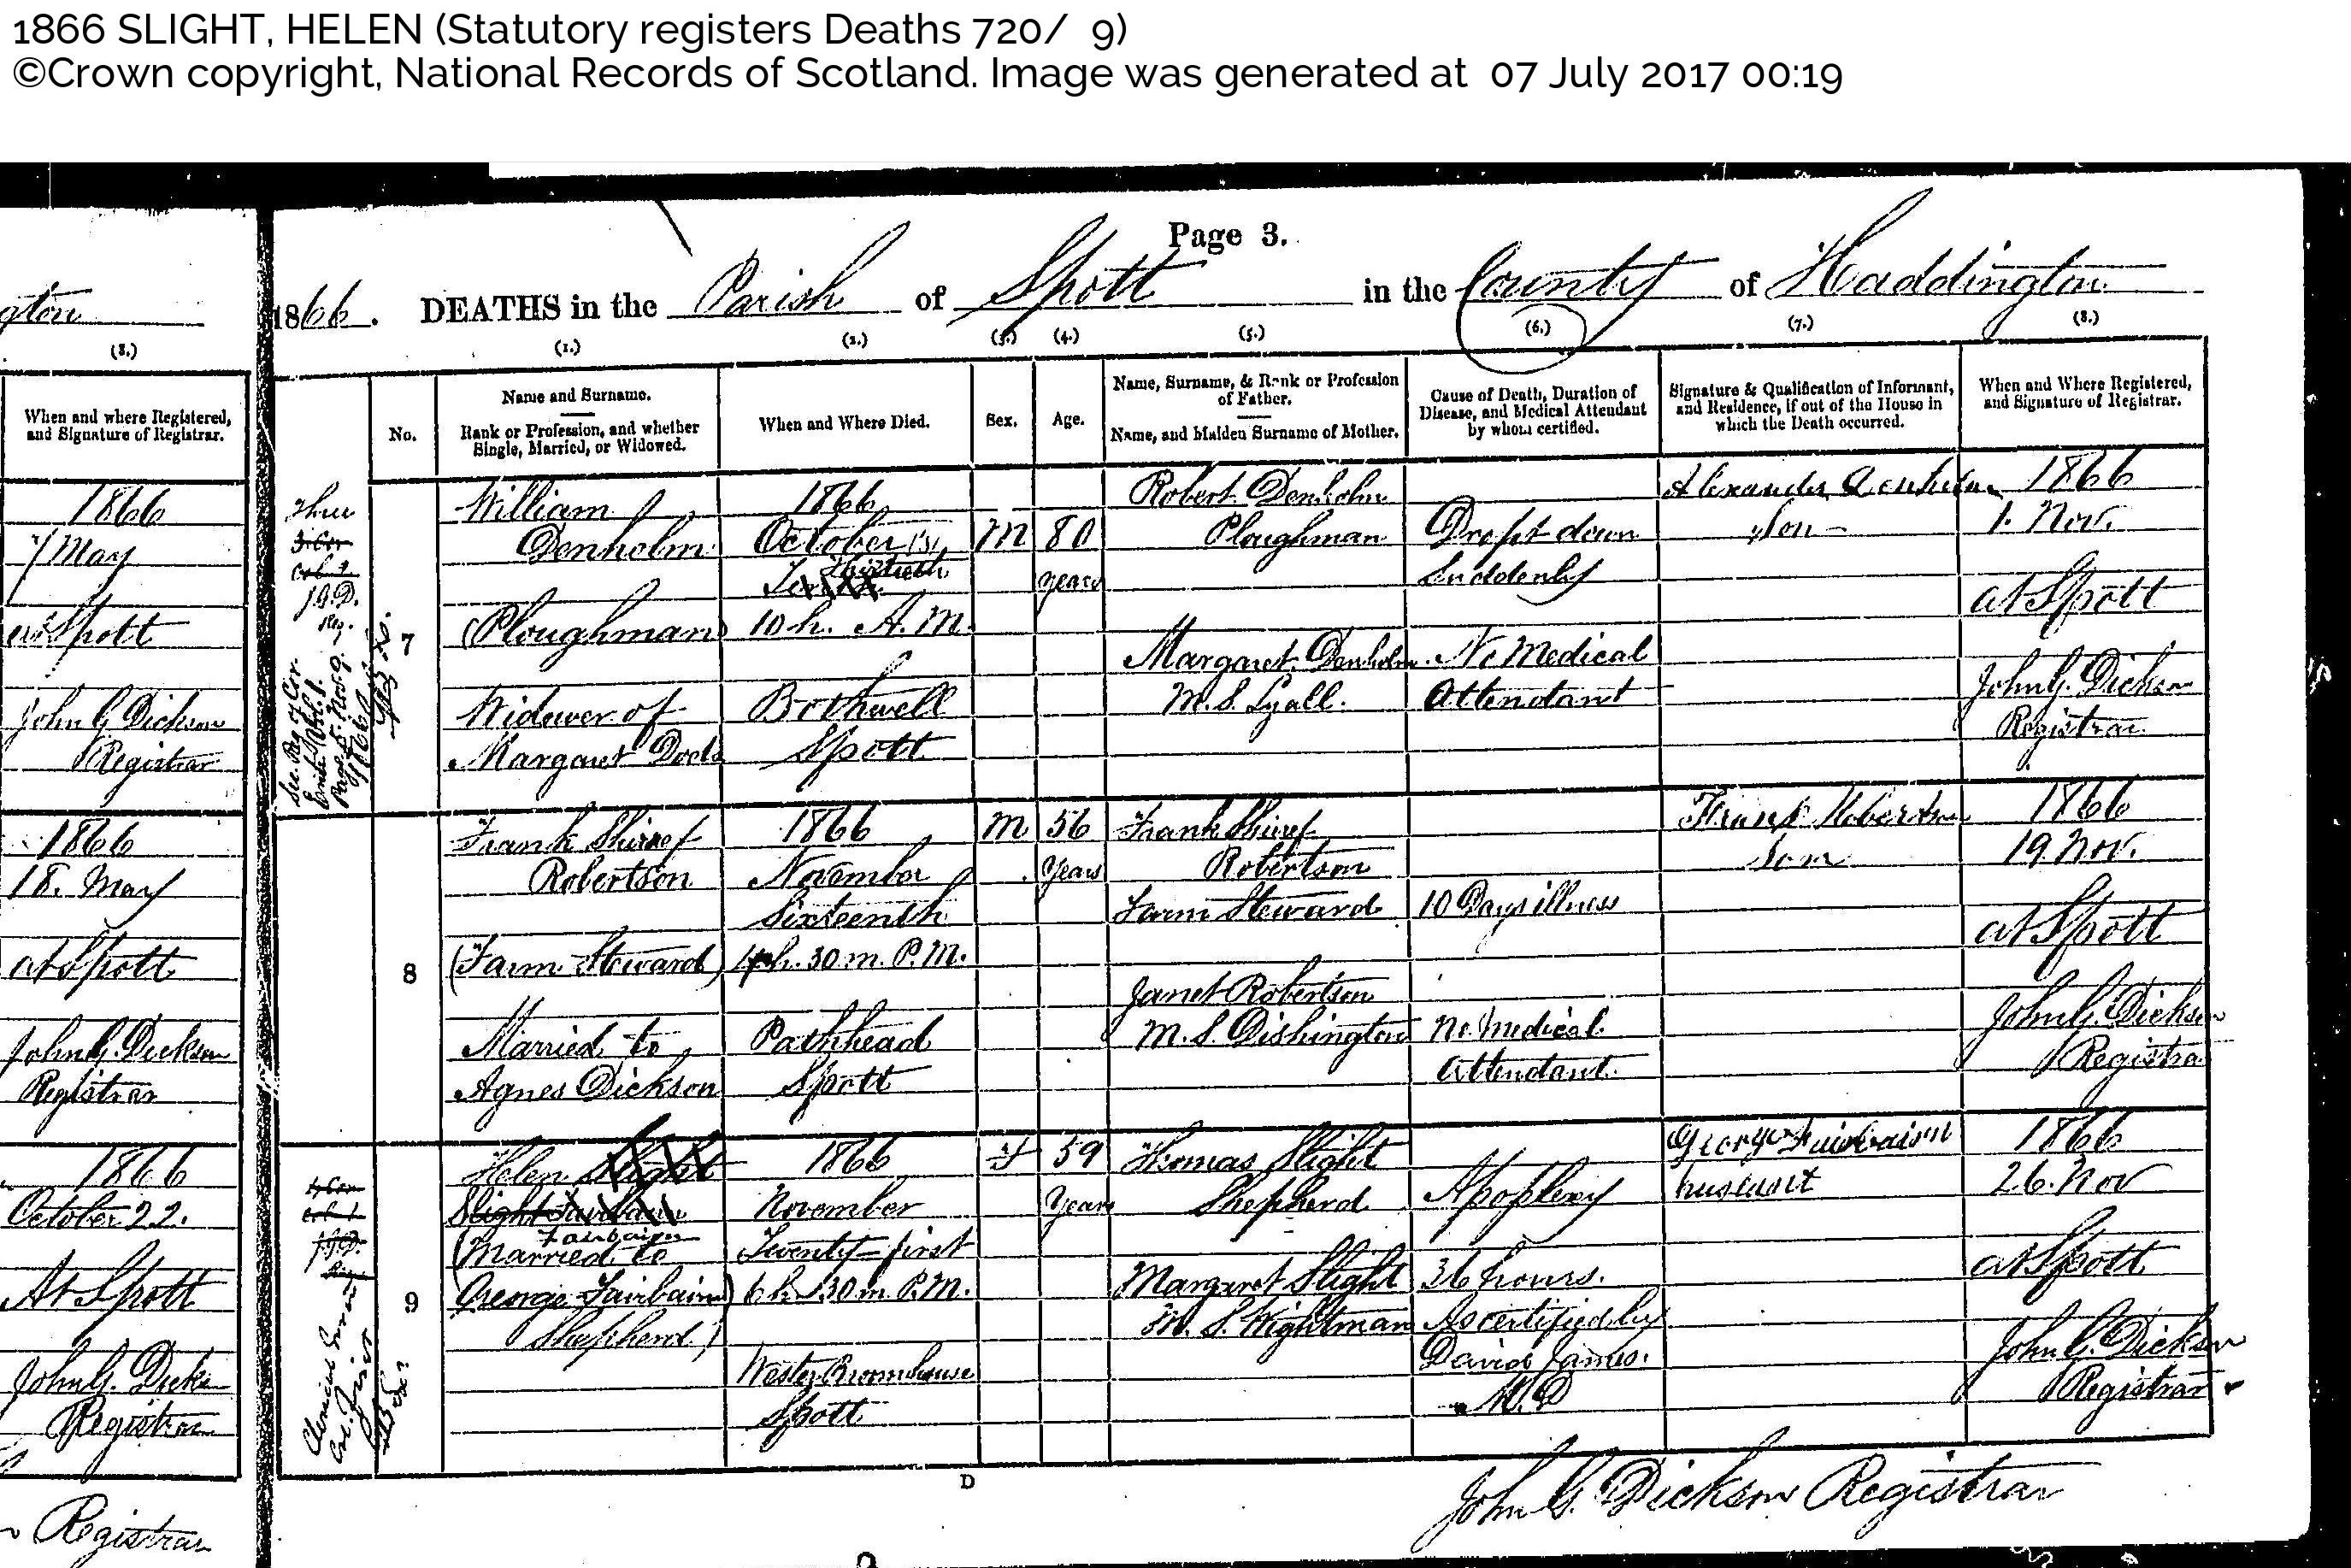 1866 SLIGHT, HELEN (Statutory registers Deaths 720/ 9)
©Crown copyright, National Records of Scotland. Image was generated at 07 July 2017 00:19
Page 3.
1866. DEATHS in the Parish of Spott in the County of Haddington
gton
(8.)
When and where Registered,
and Signature of Registrar.
1866
7 May
at Spott
John G Dickson
Registrar
1866
18. May
at Spott
John G. Dickson
Registrar
1866
October 22.
At Spott
John G. Dicks
Registrar
Registrar
(1.) (2.) (3.) (4.) (5.) (6.) (7.) (8.)
No.
Name and Surname.
Rank or Profession, and whether
Single, Married, or Widowed.
When and Where Died.
Sex.
Age.
Name, Surname, & Rank or Profession
of Father.
Name, and Maiden Surname of Mother.
Cause of Death, Duration of
Disease, and Medical Attendant
by whom certified.
Signature & Qualification of Informant,
and Residence, if out of the House in
which the Death occurred.
When and Where Registered,
and Signature of Registrar.
J.G.D.
Reg.
See Reg of Cor.
7
William
Denholm
(Ploughman)
Widower of
Margaret Dods
1866
October
Thirtieth
10 h. A.M.
Bothwell
Spott
M
80
years
Robert Denholm
Ploughman
Margaret Denholm
M.S. Lyall.
Dropt down
Suddenly
No Medical
Attendant
Alexander Denholm
Son
1866
1. Nov.
at Spott
John G. Dickson
Registrar
8
Frank Shirref
Robertson
(Farm Steward)
Married to
Agnes Dickson
1866
November
Sixteenth
4 h. 30 m. P.M.
Pathhead
Spott
M
56
Years
Frank Shirref
Robertson
Farm Steward
Janet Robertson
M.S. Dishington
10 Days illness
No Medical
Attendant.
Frank Robertson
Son
1866
19 Nov.
at Spott
John G. Dickson
Registra
Clerical Error
9
Helen Slight
Slight Fairbairn
Fairbairn
(Married to
George Fairbairn)
Shepherd)
1866
November
Twenty-first
6 h. 30 m. P.M.
Wester Broomhouse
Spott
F
59
Years
Thomas Slight
Shepherd
Margaret Slight
M.S. Wightman
Apoplexy
36 hours.
As certified by
David James.
M.D
George Fairbairn
1866
26. Nov
at Spott
John G. Dickson
Registrar
D
John G. Dickson Registrar